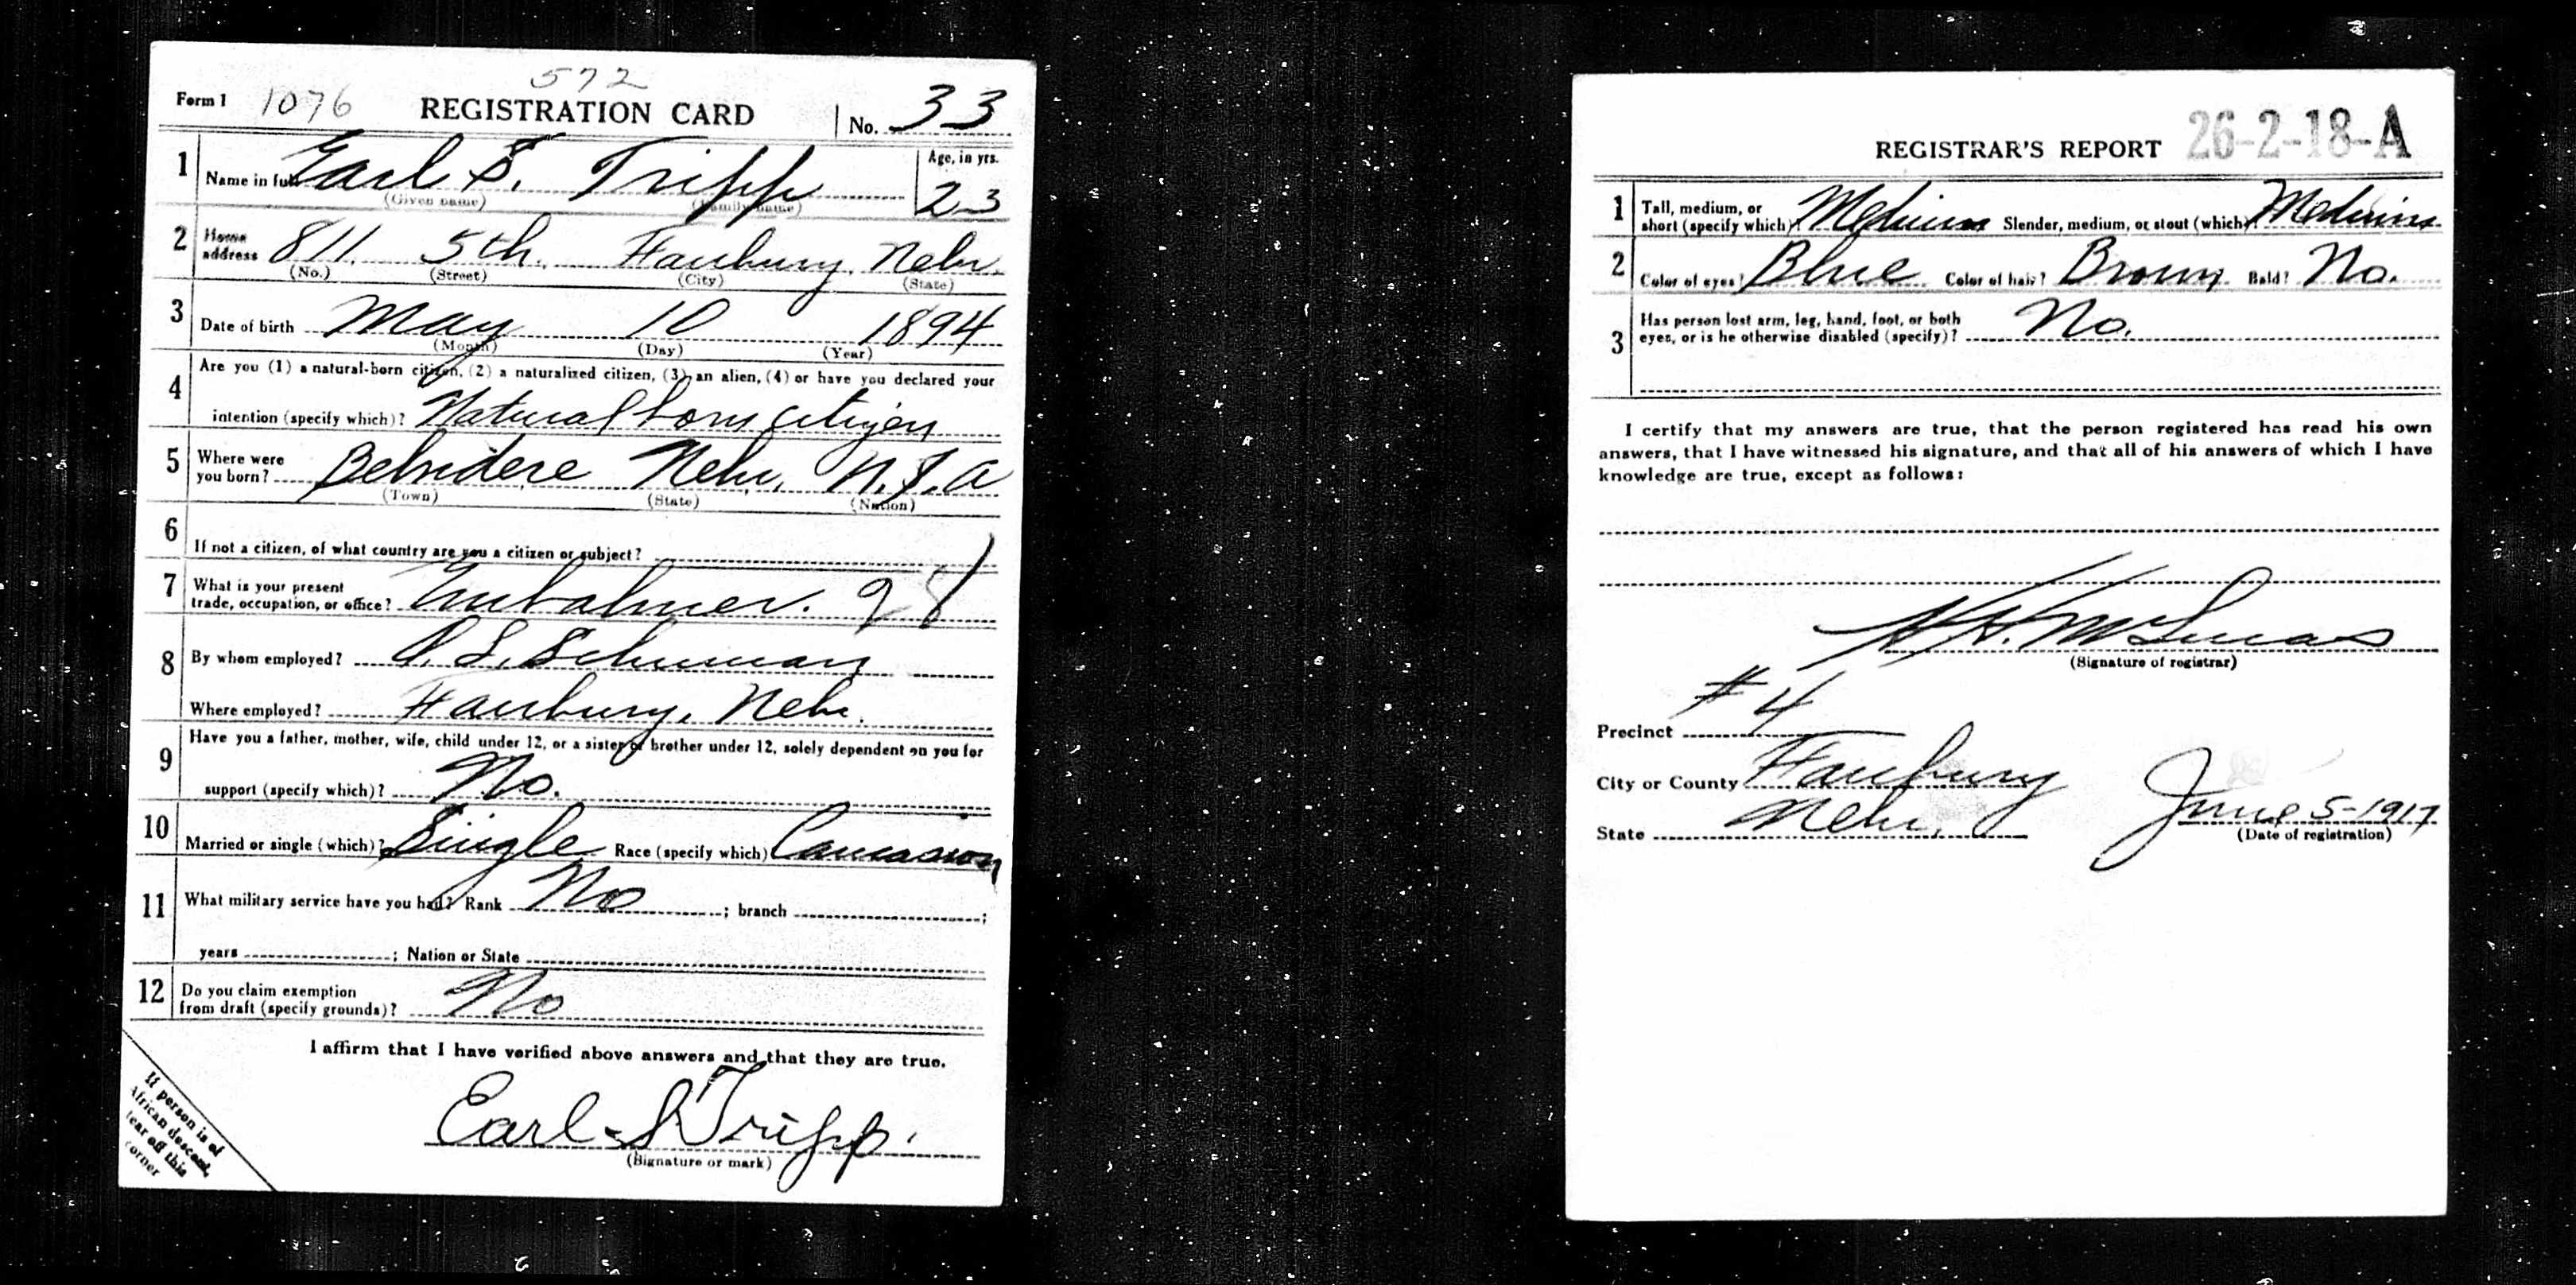 572
Form 1 1076 REGISTRATION CARD No. 33
1 Name in full Earl S. Tripp Age, in yrs. 23
(Given name) (Family name)
2 Home address 811. 5th. Fairbury, Nebr.
(No.) (Street) (City) (State)
3 Date of birth May 10 1894
(Month) (Day) (Year)
4 Are you (1) a natural-born citizen, (2) a naturalized citizen, (3) an alien, (4) or have you declared your
intention (specify which)? Natural born citizen
5 Where were you born? Belvidere Nebr. U.S.A
(Town) (State) (Nation)
6 If not a citizen, of what country are you a citizen or subject?
7 What is your present trade, occupation, or office? Embalmer. 28
8 By whom employed? Schuman
Where employed? Fairbury, Nebr.
9 Have you a father, mother, wife, child under 12, or a sister or brother under 12, solely dependent on you for
support (specify which)? No.
10 Married or single (which)? Single Race (specify which) Caucasion
11 What military service have you had? Rank No ; branch ;
years ; Nation or State
12 Do you claim exemption from draft (specify grounds)? No
I affirm that I have verified above answers and that they are true.
Earl S Tripp.
(Signature or mark)
If person is of
African descent,
tear off this
corner
REGISTRAR'S REPORT 26-2-18-A
1 Tall, medium, or short (specify which)? Medium Slender, medium, or stout (which)? Medium
2 Color of eyes? Blue Color of hair? Brown Bald? No.
3 Has person lost arm, leg, hand, foot, or both
eyes, or is he otherwise disabled (specify)? No.
I certify that my answers are true, that the person registered has read his own
answers, that I have witnessed his signature, and that all of his answers of which I have
knowledge are true, except as follows:
McLucas
(Signature of registrar)
Precinct #4
City or County Fairbury
State Nebr. June 5-1917
(Date of registration)